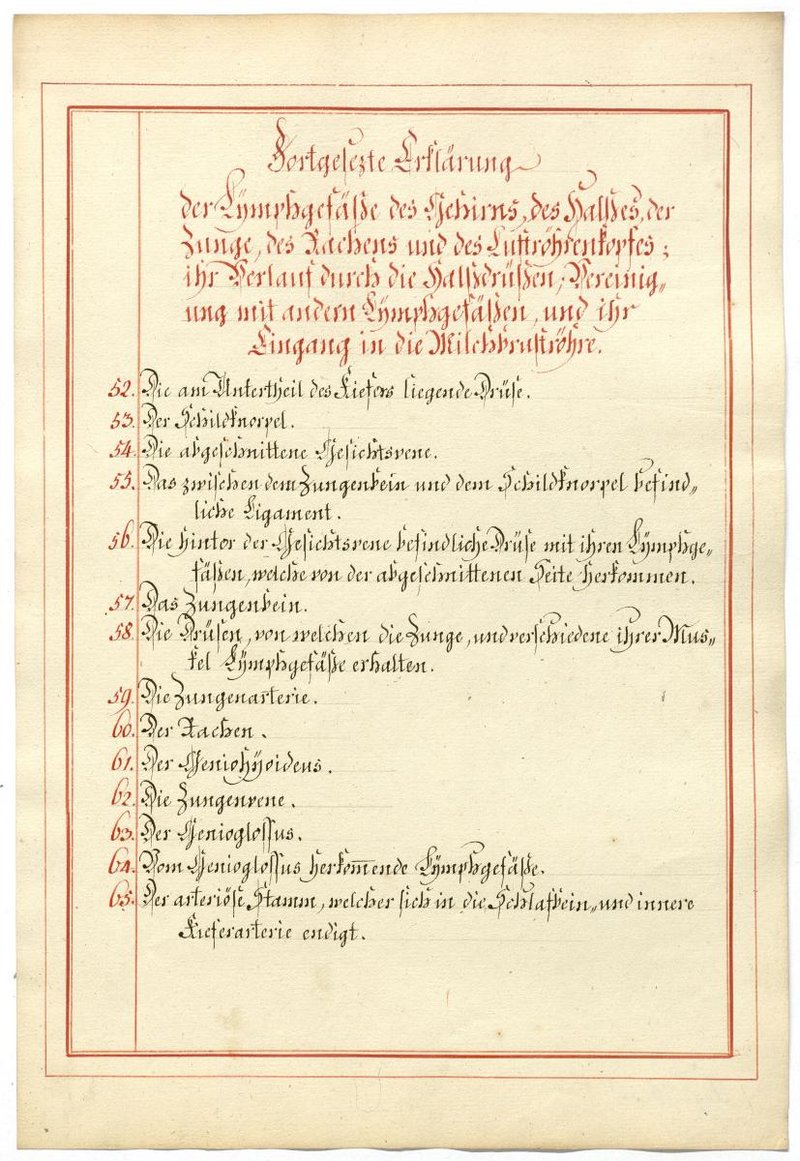 Fortgesezte Erklärung
der Lÿmphgefäße des Gehirns, des Halßes, der
Zunge, des Rachens und des Luftröhrenkopfes;
ihr Verlauf durch die Halßdrüßen, Vereinig„
ung mit andern Lÿmphgefäßen, und ihr
Eingang in die Milchbruströhre.
52. Die am Untertheil des Kiefers liegende Drüse.
53. Der Schildknorpel.
54. Die abgeschnittene Gesichtsvene.
55. Das zwischen dem Zungenbein und dem Schildknorpel befind„
liche Ligament.
56. Die hinter der Gesichtsvene befindliche Drüse mit ihren Lÿmphge„
fäßen, welche von der abgeschnittenen Seite herkommen.
57. Das Zungenbein.
58. Die Drüsen, von welchen die Zunge, und verschiedene ihrer Mus„
kel Lÿmphgefäße erhalten.
59. Die Zungenarterie.
60. Der Rachen.
61. Der Geniohÿoideus.
62. Die Zungenvene.
63. Der Genioglossus.
64. Vom Genioglossus herkom̅ende Lÿmphgefäße.
65. Der arteriöse Stamm, welcher sich in die Schlafbein„ und innere
Kieferarterie endigt.